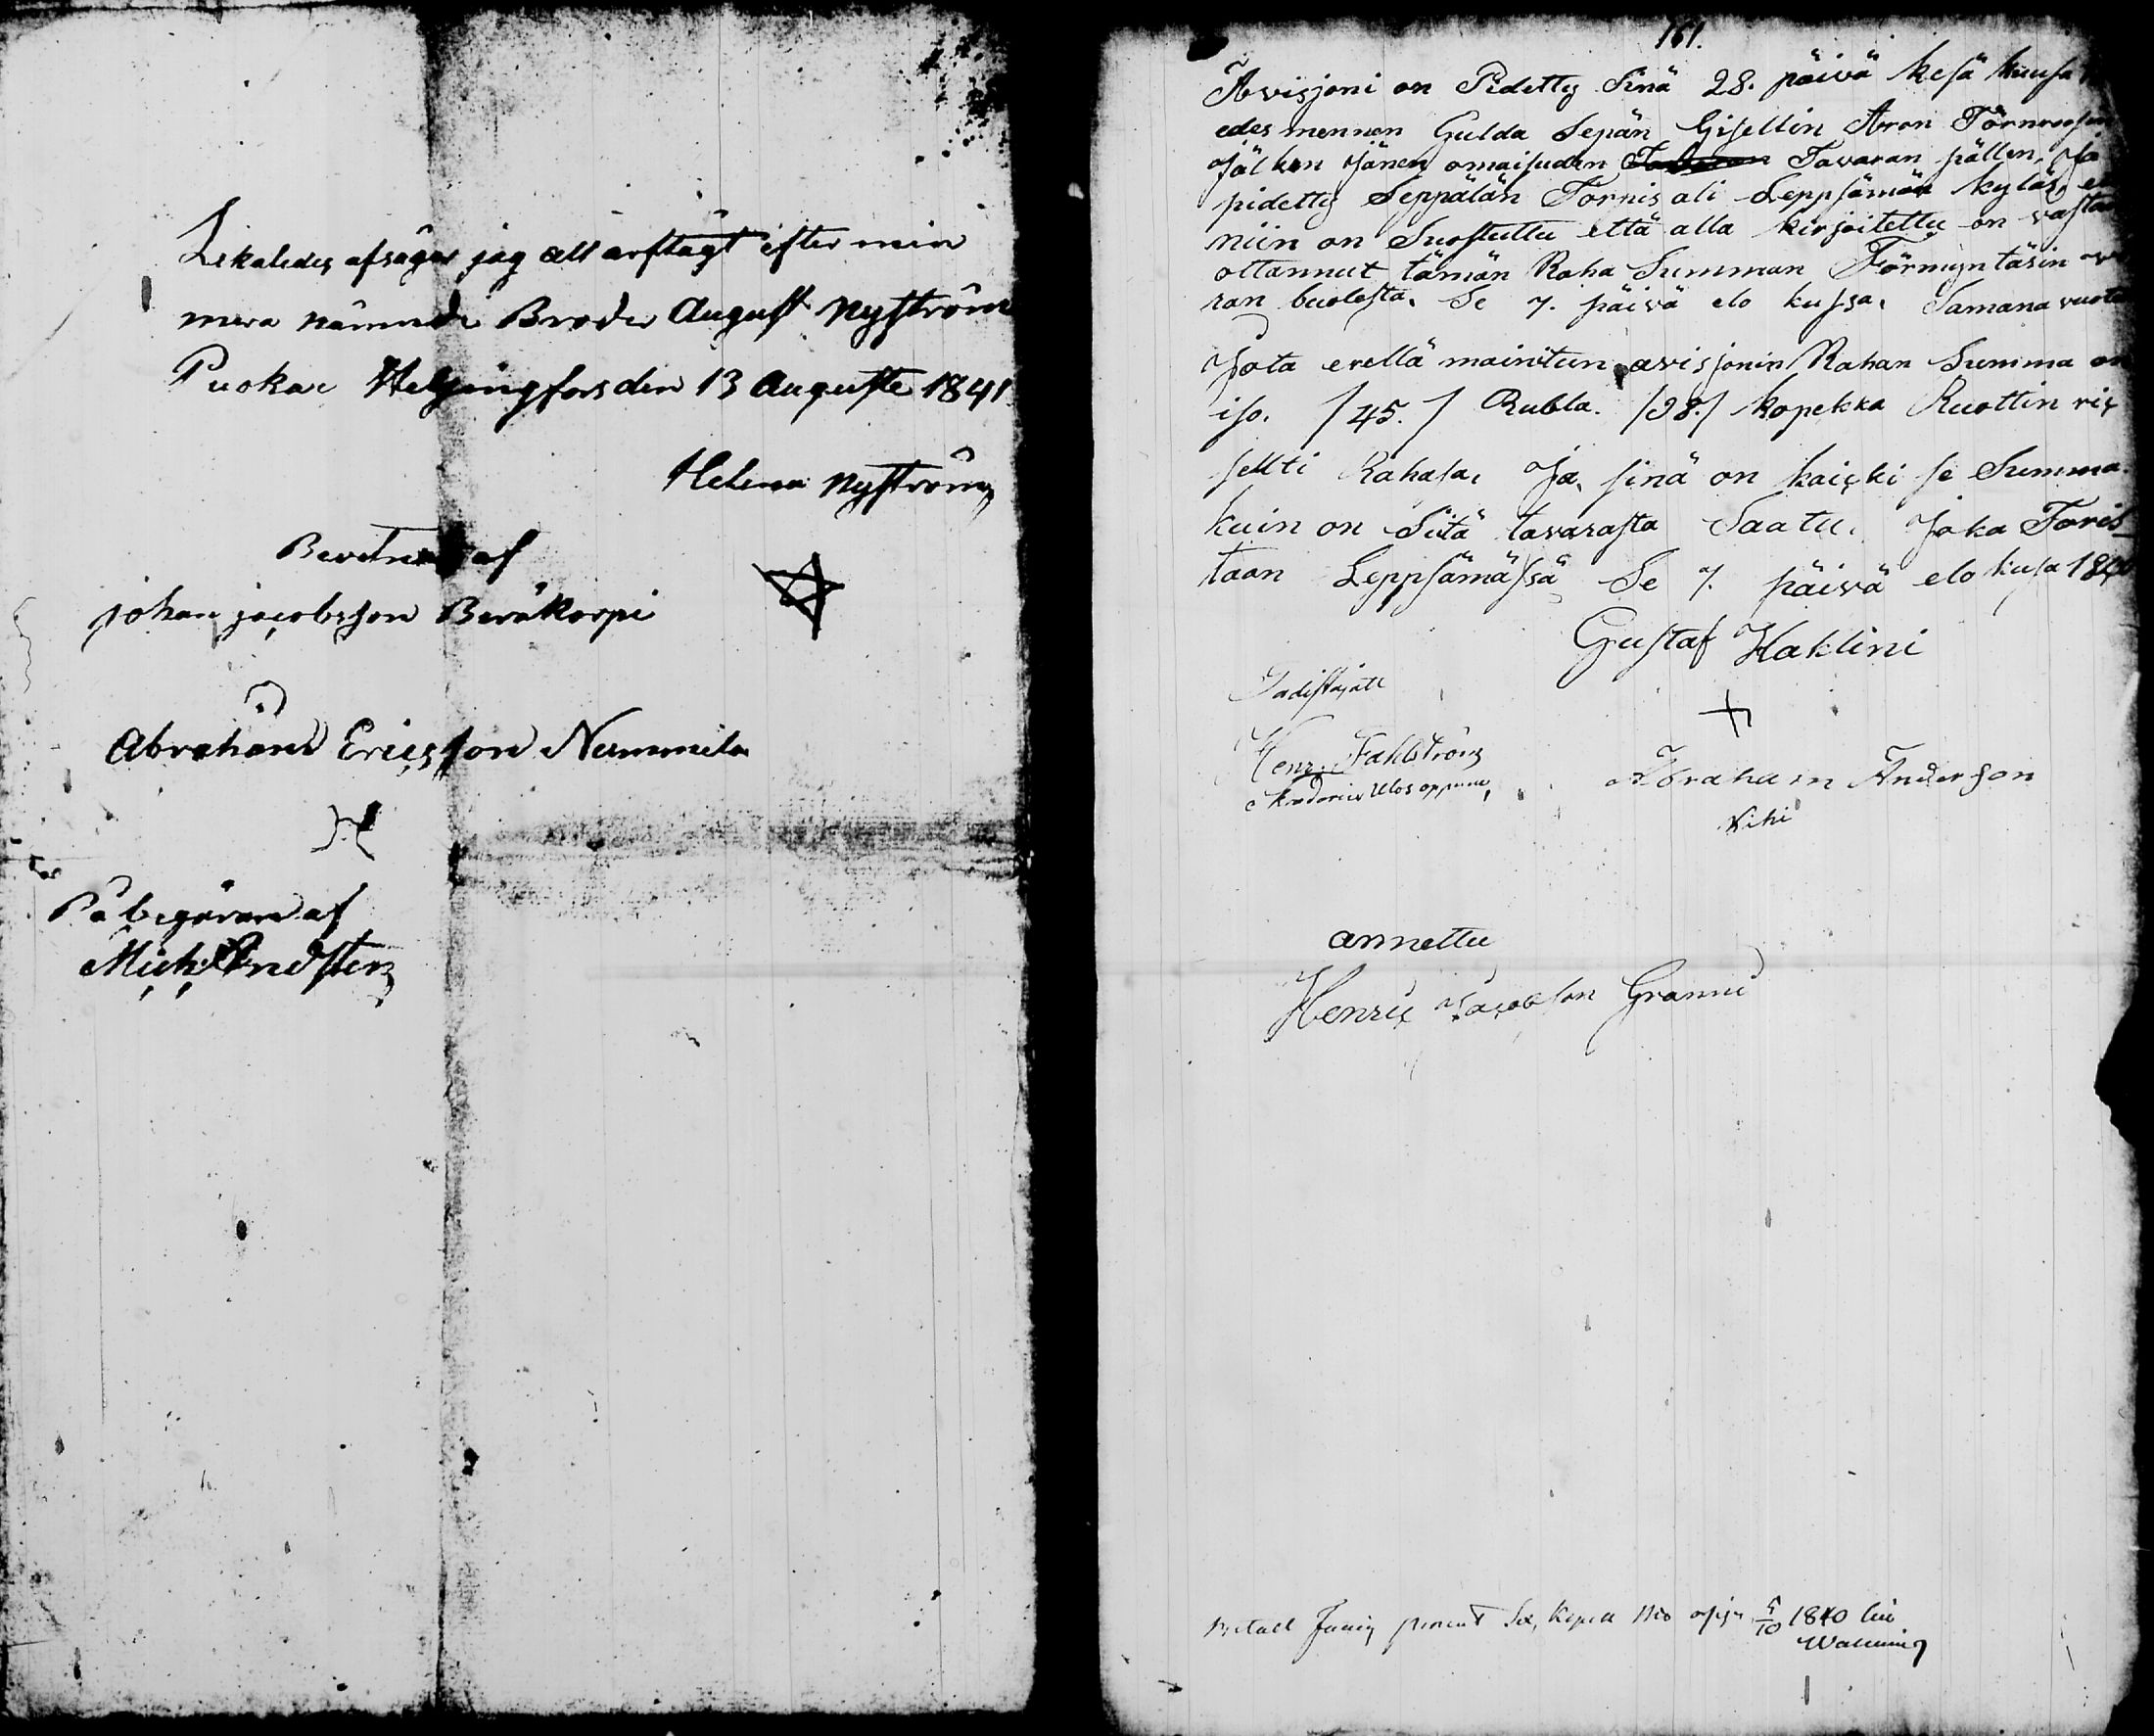 Likaledes afsäger jag all arftägt efter min
mera nämnde Broder August Nyström
Puokar Helsingfors den 13 Auguste 1841.
Helena Nyström
Bevitnas af
johan jacobsson Beräkorpi
Abraham Ericsson Nummila
På begäran af
Mich Lindsten
161.
Avisjoni on Pidetty Sinä 28. päivä kesä kuusa
edes mennen Gulda Sepän Gisellin Aron Törnroosin
Jälken Jänen omaisuden Tavaran pällen, Ja
pidetty Seppälän Tornis ali Leppsämän kyläs,
niin on Suostuttu että alla kirjoitettu on vastan
ottannut tämän Raha Summan Förmyntäsin
ran buolesta. Se 7. päivä elo kussa. Samana vuota
Jota erellä mainitun avisjonin Rahan Summa on
iso. /45./ Rubla. /98./ kopekka Ruottin riç
sellti Rahasa, Ja, sinä on kaiçki se Summa.
kuin on Siitä tavarasta Saatu. Joka Toris-
taan Leppsämässä Se 7. päivä elo kusa 1840
Gustaf Haklini
Todistajatt
Henr. Fahlström
Abraham Anderson
Vihi
annettu
Henriç Jacobson Grannu
1840